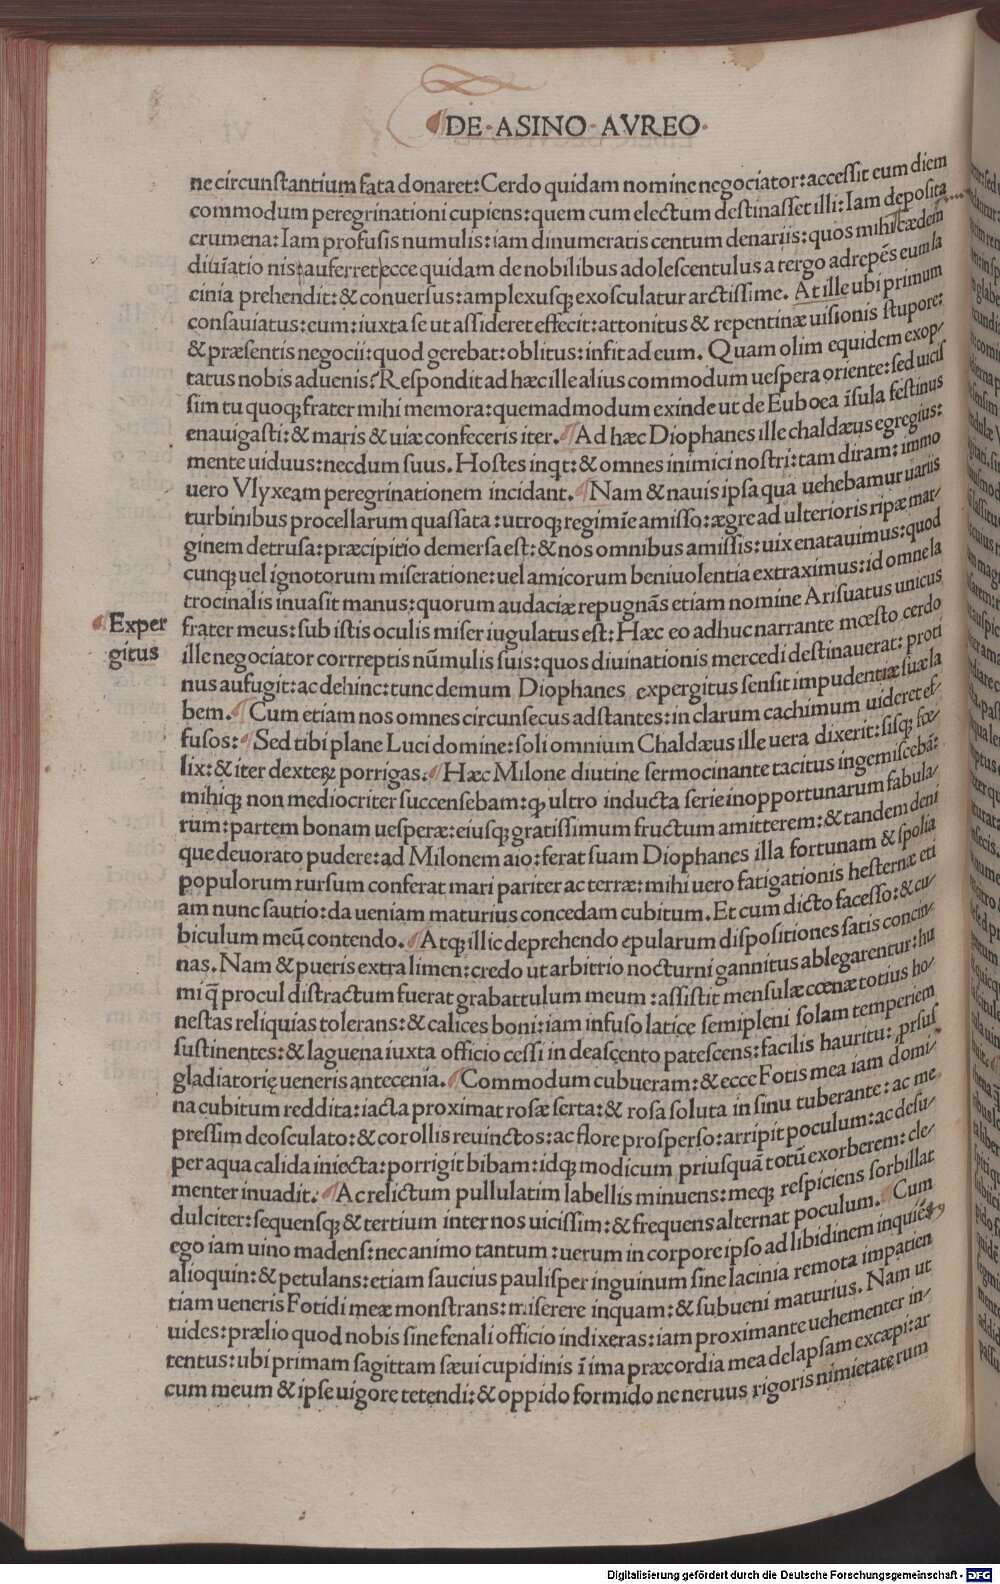 DE · ASINO · AVREO ·
ne circunſtantium fata donaret: Cerdo quidam nomine negociator: acceſſit eum diem
commodum peregrinationi cupiens: quem cum electum deſtinaſſet illi: Iam depoſita
crumena: Iam profuſis numulis: iam dinumeratis centum denariis: quos mihi cædem
diuīatio nis auferret ecce quidam de nobilibus adoleſcentulus a tergo adrepēs eum la
cinia prehendit: & conuerſus: amplexuſq; exoſculatur arctiſſime. At ille ubi primum
conſauiatus: eum: iuxta ſe ut aſſideret effecit: attonitus & repentinæ uiſionis ſtupore:
& præſentis negocii: quod gerebat: oblitus: infit ad eum. Quam olim equidem exop-
tatus nobis aduenis? Reſpondit ad hæc ille alius commodum ueſpera oriente: ſed uiciſ
ſim tu quoq; frater mihi memora: quemadmodum exinde ut de Euboea iſula feſtinus
enauigaſti: & maris & uiæ confeceris iter. Ad hæc Diophanes ille chaldæus egregius:
mente uiduus: necdum ſuus. Hoſtes inqt: & omnes inimici noſtri: tam diram: immo
uero Vlyxeam peregrinationem incidant. Nam & nauis ipſa qua uehebamur uariis
turbinibus procellarum quaſſata: utroq; regimīe amiſſo: ægre ad ulterioris ripæ mar-
ginem detruſa: præcipitio demerſa eſt: & nos omnibus amiſſis: uix enatauimus: quod
cunq; uel ignotorum miſeratione: uel amicorum beniuolentia extraximus: id omne la
trocinalis inuaſit manus: quorum audaciæ repugnās etiam nomine Ariſuatus unicus
Exper
gitus
frater meus: ſub iſtis oculis miſer iugulatus eſt: Hæc eo adhuc narrante mœſto cerdo
ille negociator corrreptis nūmulis ſuis: quos diuinationis mercedi deſtinauerat: proti
nus aufugit: ac dehinc: tunc demum Diophanes expergitus ſenſit impudentiæ ſuæ la
bem. Cum etiam nos omnes circunſecus adſtantes: in clarum cachimum uideret ef-
fuſos: Sed tibi plane Luci domine: ſoli omnium Chaldæus ille uera dixerit: ſiſq; fœ-
lix: & iter dexteꝝ porrigas. Hæc Milone diutine ſermocinante tacitus ingemiſcebā:
mihiq; non mediocriter ſuccenſebam: ꝙ ultro inducta ſerie inopportunarum fabula-
rum: partem bonam ueſperæ: eiuſq; gratiſſimum fructum amitterem: & tandem deni
que deuorato pudere: ad Milonem aio: ferat ſuam Diophanes illa fortunam & ſpolia
populorum rurſum conferat mari pariter ac terræ: mihi uero fatigationis heſternæ eti
am nunc ſautio: da ueniam maturius concedam cubitum. Et cum dicto faceſſo: & cu-
biculum meū contendo. Atq; illic deprehendo epularum diſpoſitiones ſatis concin-
nas. Nam & pueris extra limen: credo ut arbitrio nocturni gannitus ablegarentur: hu
mi q̄ procul diſtractum fuerat grabattulum meum: aſſiſtit menſulæ cœnæ totius ho-
neſtas reliquias tolerans: & calices boni: iam infuſo latice ſemipleni ſolam temperiem
ſuſtinentes: & laguena iuxta officio ceſſi in deaſcento pateſcens: facilis hauritu: prſuſ
gladiatorię ueneris antecenia. Commodum cubueram: & ecce Fotis mea iam domi-
na cubitum reddita: iacta proximat roſæ ſerta: & roſa ſoluta in ſinu tuberante: ac me
preſſim deoſculato: & corollis reuinctos: ac flore proſperſo: arripit poculum: ac deſu-
per aqua calida iniecta: porrigit bibam: idq; modicum priuſquā totū exorberem: cle-
menter inuadit. Ac relictum pullulatim labellis minuens: meq; reſpiciens ſorbillat
dulciter: ſequenſq; & tertium inter nos uiciſſim: & frequens alternat poculum. Cum
ego iam uino madens: nec animo tantum: uerum in corpore ipſo ad libidinem inquiēs
alioquin: & petulans: etiam ſaucius pauliſper inguinum ſine lacinia remota impatien
tiam ueneris Fotidi meæ monſtrans: miſerere inquam: & ſubueni maturius. Nam ut
uides: prælio quod nobis ſine fenali officio indixeras: iam proximante uehementer in-
tentus: ubi primam ſagittam ſæui cupidinis ī ima præcordia mea delapſam excæpi: ar
cum meum & ipſe uigore tetendi: & oppido formido ne neruus rigoris nimietate rum
Digitalisierung gefördert durch die Deutsche Forschungsgemeinschaft - DFG